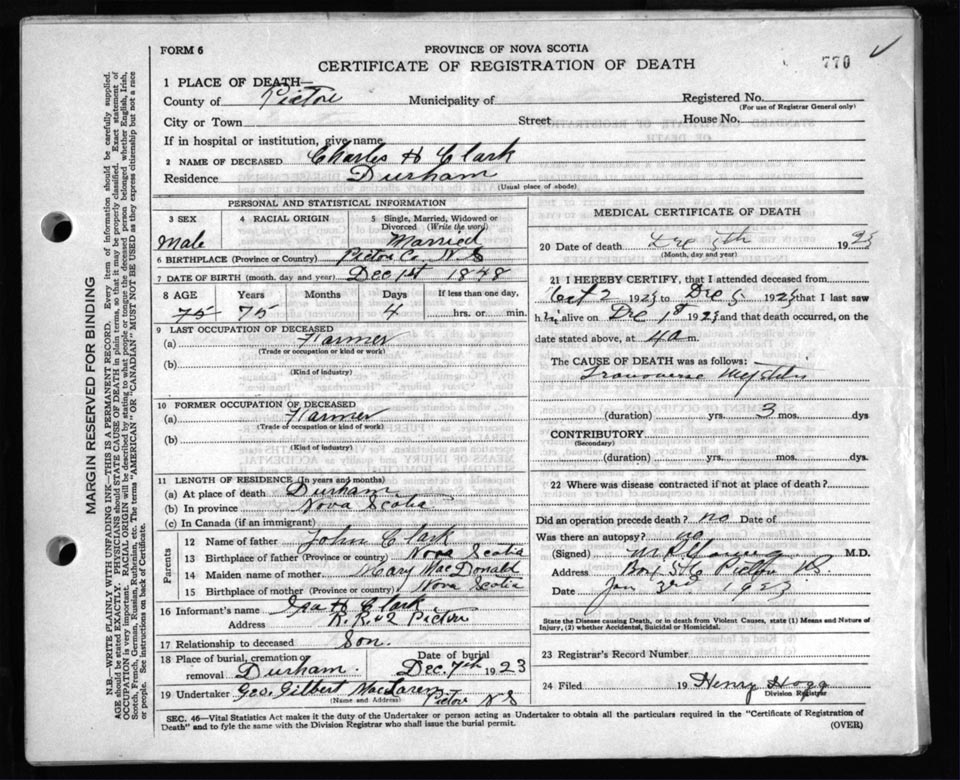 FORM 6
PROVINCE OF NOVA SCOTIA
CERTIFICATE OF REGISTRATION OF DEATH
770
1 PLACE OF DEATH—
County of Pictou Municipality of Registered No.
(For use of Registrar General only)
City or Town Street, House No.
If in hospital or institution, give name
2 NAME OF DECEASED Charles H Clark
Residence Durham
(Usual place of abode)
PERSONAL AND STATISTICAL INFORMATION
3 SEX 4 RACIAL ORIGIN 5 Single, Married, Widowed or Divorced (Write the word)
Male Married
6 BIRTHPLACE (Province or Country) Pictou Co. N S
7 DATE OF BIRTH (month, day and year) Dec 1st 1848
8 AGE Years Months Days If less than one day,
75 75 4 hrs. or min.
9 LAST OCCUPATION OF DECEASED
(a) Farmer
(Trade or occupation or kind or work)
(b)
(Kind of industry)
10 FORMER OCCUPATION OF DECEASED
(a) Farmer
(Trade or occupation or kind of work)
(b)
(Kind of industry)
11 LENGTH OF RESIDENCE (In years and months)
(a) At place of death Durham
(b) In province Nova Scotia
(c) In Canada (if an immigrant)
Parents
12 Name of father John Clark
13 Birthplace of father (Province or country) Nova Scotia
14 Maiden name of mother Mary MacDonald
15 Birthplace of mother (Province or country) Nova Scotia
16 Informant's name Ira H Clark
Address R.R. #2 Pictou
17 Relationship to deceased Son.
18 Place of burial, cremation or removal Durham. Date of burial Dec. 7th 1923
19 Undertaker Geo. Gilbert MacLaren
(Name and Address) Pictou N S
MEDICAL CERTIFICATE OF DEATH
20 Date of death Dec 5th 1923
(Month, day and year)
21 I HEREBY CERTIFY, that I attended deceased from
Oct 2 1923 to Dec 5 1923 that I last saw
him alive on Dec 1st 1923 and that death occurred, on the
date stated above, at 4 a m.
The CAUSE OF DEATH was as follows:
Transverse Myelitis
(duration) yrs. 3 mos. dys
CONTRIBUTORY
(Secondary)
(duration) yrs. mos. dys.
22 Where was disease contracted if not at place of death?
Did an operation precede death? no Date of
Was there an autopsy? no
(Signed) Young M.D.
Address Box Pictou N.S.
Date Jan 3rd 1923
State the Disease causing Death, or in death from Violent Causes, state (1) Means and Nature of
Injury, (2) whether Accidental, Suicidal or Homicidal.
23 Registrar's Record Number
24 Filed 19 Henry Hogg
Division Registrar
SEC. 46—Vital Statistics Act makes it the duty of the Undertaker or person acting as Undertaker to obtain all the particulars required in the "Certificate of Registration of
Death" and to fyle the same with the Division Registrar who shall issue the burial permit.
(OVER)
MARGIN RESERVED FOR BINDING
N.B.—WRITE PLAINLY WITH UNFADING INK—THIS IS A PERMANENT RECORD. Every item of information should be carefully supplied.
AGE should be stated EXACTLY. PHYSICIANS should STATE CAUSE OF DEATH in plain terms, so that it may be properly classified. Exact statement of
OCCUPATION is very important. RACIAL ORIGIN will be described by stating to what people or tongue the deceased person belonged whether English, Irish,
Scotch, French, German, Russian, Ruthenian, etc. The terms "AMERICAN" OR "CANADIAN" MUST NOT BE USED as they express citizenship but not a race
or people. See instructions on back of Certificate.